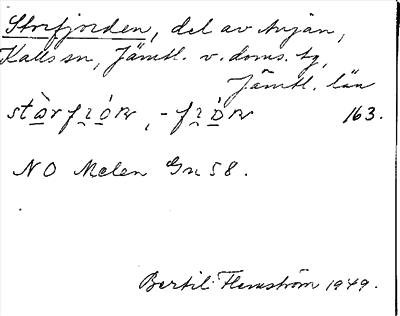 Storfjorden, del av Anjan,
Kalls sn, Jämtl. v. doms. tg,
Jämtl. län
163.
NO Melen Gn 58.
Bertil Flemström 1949.